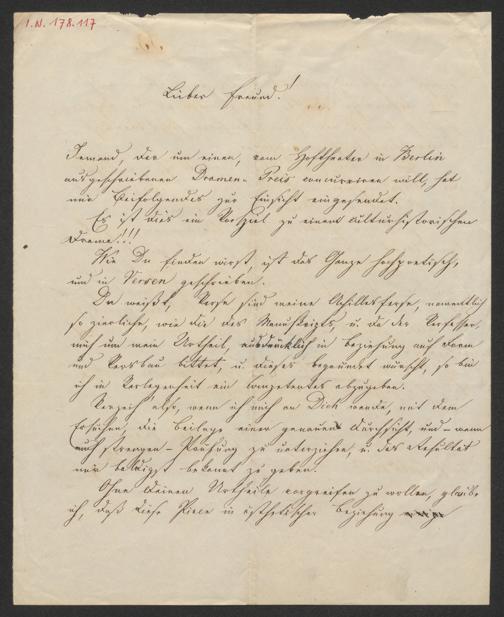 I.N. 178.117
Lieber Freund!
Jemand, der um einen, vom Hoftheater in Berlin
ausgeschriebenen Dramen-Preis concurriren will, hat
mir Beifolgendes zur Einsicht eingesendet.
Es ist dies ein Vorspiel zu einem culturhistorischen
Drama!!!
Wie Du finden wirst, ist das Ganze hochpoetisch,
und in Versen geschrieben.
Du weißt, Verse sind meine Achillesferse, namentlich
so zierliche, wie die des Manuskripts, u. da der Verfasser
mich um mein Urtheil, ausdrücklich in Beziehung auf Form
und Versbau bittet, u. dieses begründet wünscht, so bin
ich in Verlegenheit ein Competentes abzugeben.
Verzeih also, wenn ich mich an Dich wende, mit dem
Ersuchen, die Beilage einer genauen Durchsicht, und – wenn
auch strengen – Prüfung zu unterziehen, u. das Resultat
mir bekannt zu geben.
Ohne Deinem Urtheile vorgreifen zu wollen, glaube
ich, daß diese Piece in ästhetischer Beziehung